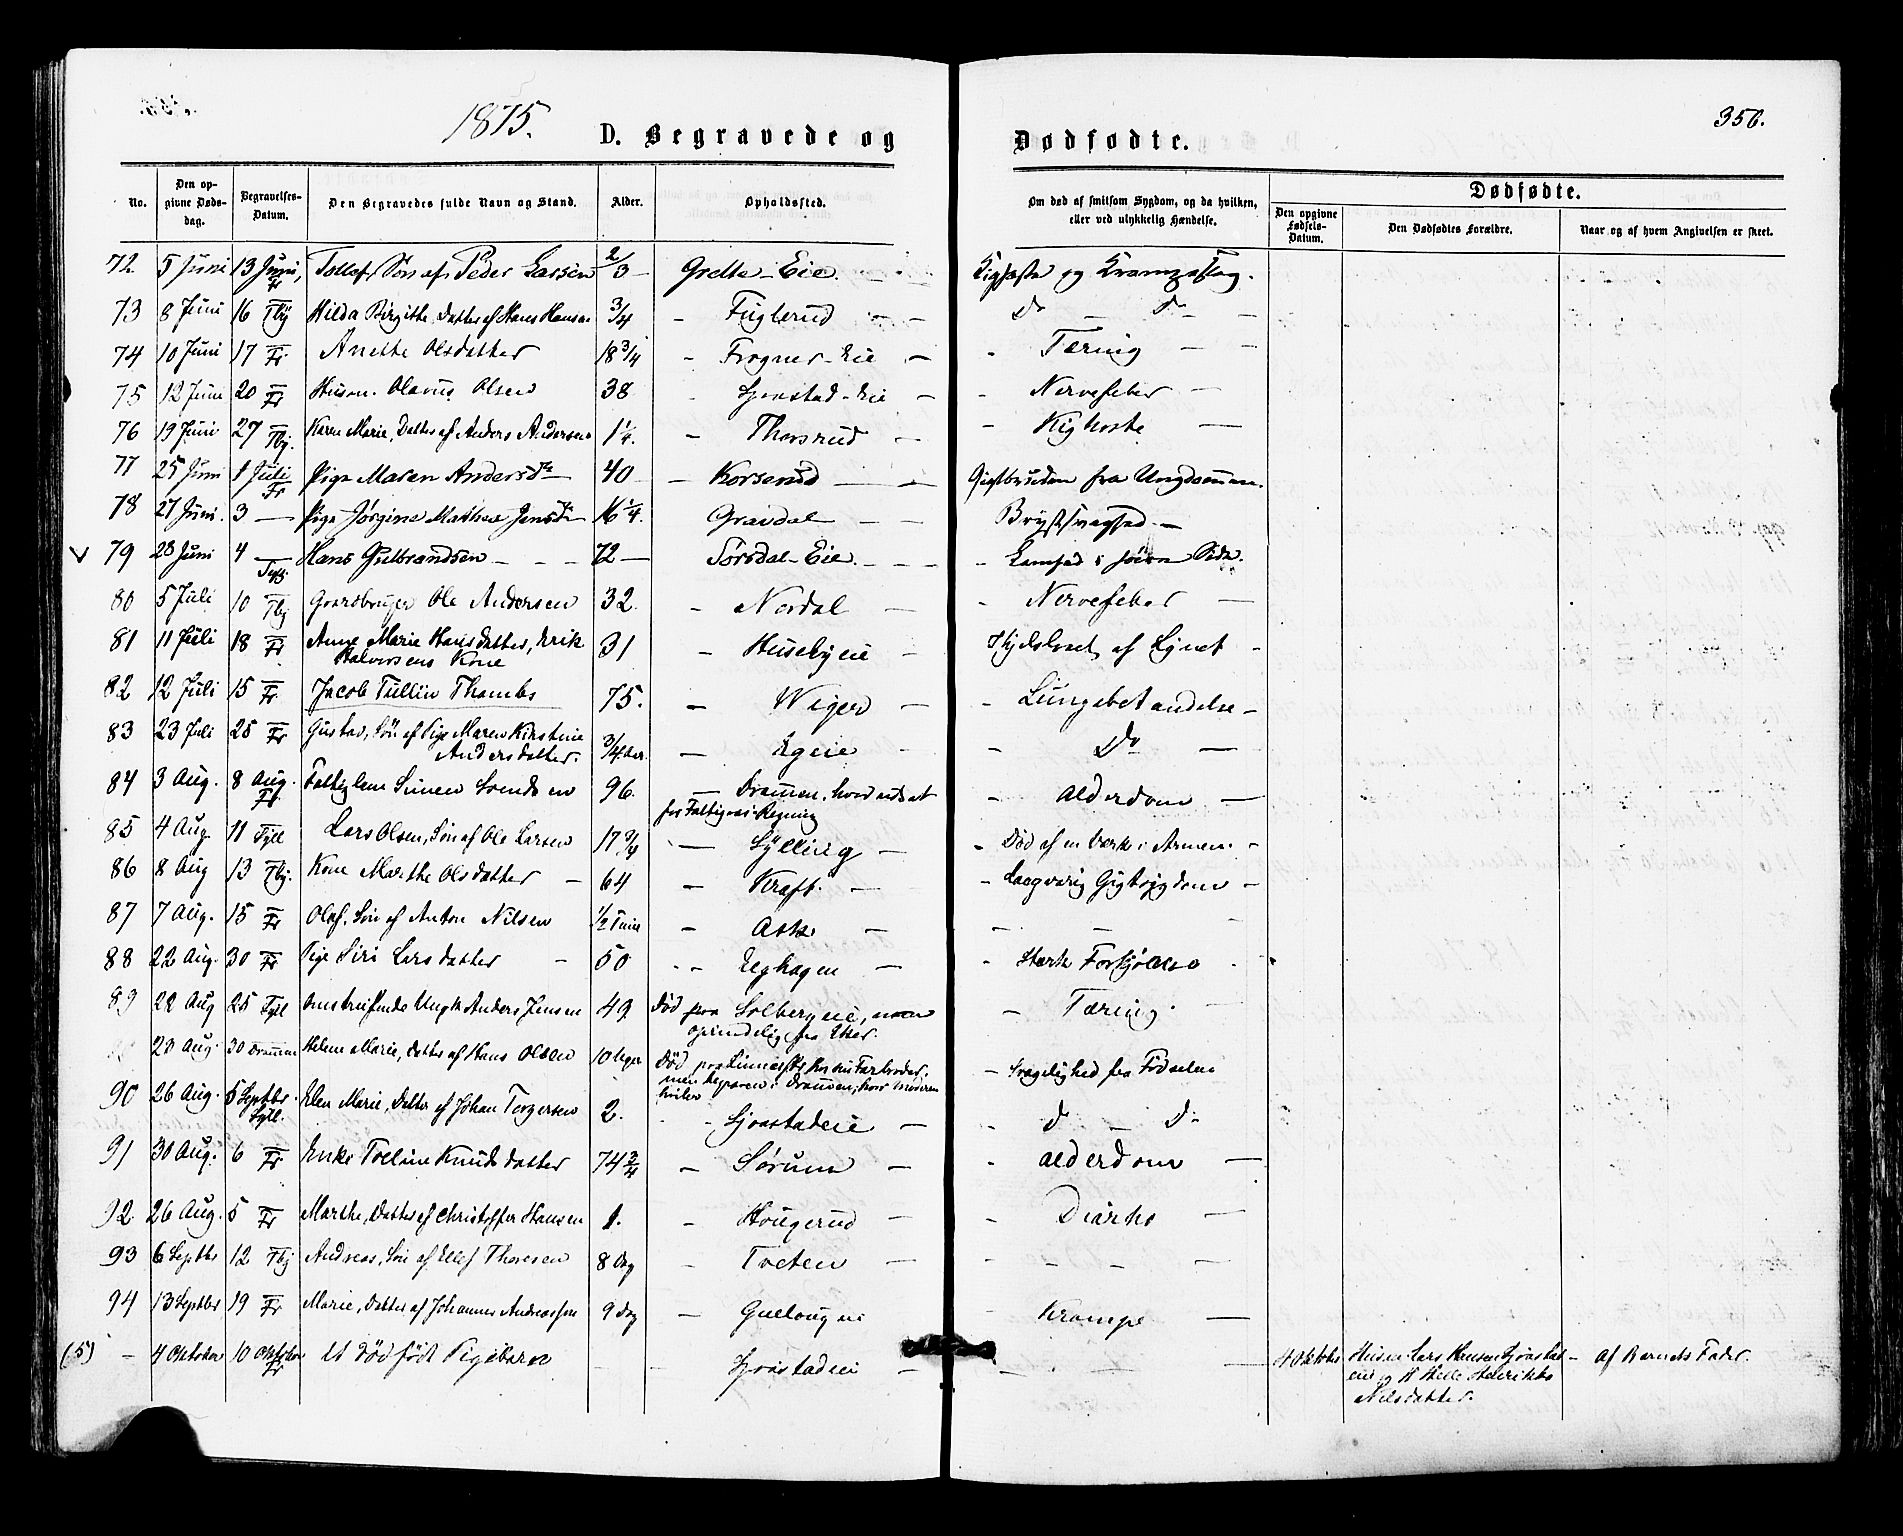 1875.
356.
D. Begravede og Dødfødte.
No. Den opgivne Dødsdag. Begravelses-Datum. Den Begravedes fulde Navn og Stand. Alder. Opholdssted. Om død af smitsom Sygdom, og da hvilken, eller ved ulykkelig Hændelse. Dødfødte. Den opgivne Fødsels-Datum. Den Dødfødtes Forældre. Naar og af hvem Angivelsen er skeet.
72. 5 Juni 13 Juni, Fr Tollef, Søn af Peder Larsen 2/3 — Grette-Eie. Kighoste og Krampeslag.
73 8 Juni 16 Tbj Hilda Birgithe, Datter af Hans Hansen 3/4 - Fuglerud — — Do — Do — —
74 10 Juni 17 Fr. Anette Olsdatter 18 3/4 - Frogner-Eie — - Tæring — —
75 12 Juni 20 Fr Husm. Olavus Olsen 38 - Gjoustad-Eie — - Nervefeber —
76 19 Juni 27 Tbj. Karen Marie, Datter af Anders Andersen 1 1/4. - Thorsrud — - Kighoste —
77 25 Juni 1 Juli Fr Pige Maren Andersdr — 40 — Korserud — — Gigtbruden fra Ungdommen.
78 27 Juni. 3 — Pige Jørgine Mathea Jensdr 16 1/4. Gravdal — — Brystsvaghed. —
V 79 28 Juni 4 — Tyll. Hans Gulbrandsen - - - 72 — Sørsdal-Eie. - - - - Lamhed i høire Side.
80 5 Juli 10 Tbj Gaardbruger Ole Andersen 32. - Nordal — - Nervefeber —
81 11 Juli 18 Fr Anne Marie Hansdatter, Erik
Halvorsens Kone 31 - Husebyeie — Ihjelslaaet af Lynet -
82 12 Juli 15 Fr. Jacob Tullin Thams 75. - Wiger — - Lungebetændelse —
83 23 Juli 25 Fr Gustav, Søn af Pige Maren Kirstine
Andersdatter. 3/4 Aar — Egeie — Do —
84 3 Aug. 8 Aug. Fr. Fattiglem Simen Svendsen 96. — Drammen, hvor udsat
for Fattigvæs. Regning - Alderdom —
85 4 Aug. 11 Tyll Lars Olsen, Søn af Ole Larsen 17 3/4 — Sylling — - Død af en Værk i Armen. -
86 8 Aug 13 Tbj. Kone Marthe Olsdatter — 64 — Kraft. — - Langvarig Gigtsygdom —
87 7 Aug. 15 Fr Olaf, Søn af Anton Nilsen 1/2 Time — Ask — - — -
88 22 Aug. 30 Fr Pige Siri Larsdatter - 50 - - Eghagen — - Stærk Forkjølelse -
89 22 Aug 25 Tyll Omstreifende Ungk. Anders Jensen 49 Død paa Solbergeie, men
oprindelig fra Eker. — Tæring.
23 Aug. 30 Drammen Helene Marie, Datter af Hans Olsen 10 Uger Død paa Linnes hos sin Farbroder,
men begraven i Drammen, hvor Moderen
hviler — Svagelighed fra Fødselen
90 26 Aug. 5 Septbr. Syll. Elen Marie, Datter af Johan Torgersen 2. - - Gjoustadeie — - Do — Do
91 30 Aug. 6 Fr Enke Toline Knudsdatter 74 3/4 — Sørum — - Alderdom —
92. 26 Aug. 5 Fr Marthe, Datter af Christoffer Hansen 1. - Hougerud — - Diarhe —
93 6 Septbr 12 Tbj Andreas, Søn af Ellef Thoresen 8 Dag - Tveten — - - - —
94 13 Septbr 19 Fr Marie, Datter af Johannes Andreassen 9 Dag — Gullougeie - Krampe —
(5) - 4 Oktober 10 Oktober Fr Et dødfødt Pigebarn - — Gjoustadeie — - — 4 Oktober Husm. Lars Hansen Gjoustad-
eie og H. Helle Henrikke
Nilsdatter. — Af Barnets Fader.